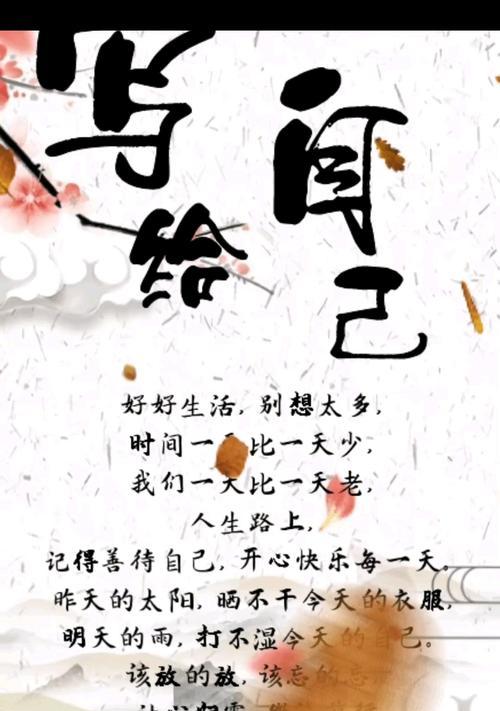 写给
自己
好好生活，别想太多，
时间一天比一天少，
我们一天比一天老，
人生路上，
记得善待自己，开心快乐每一天。
昨天的太阳，晒不干今天的衣服，
明天的雨，打不湿今天的自己。
该放的放，该忘的忘